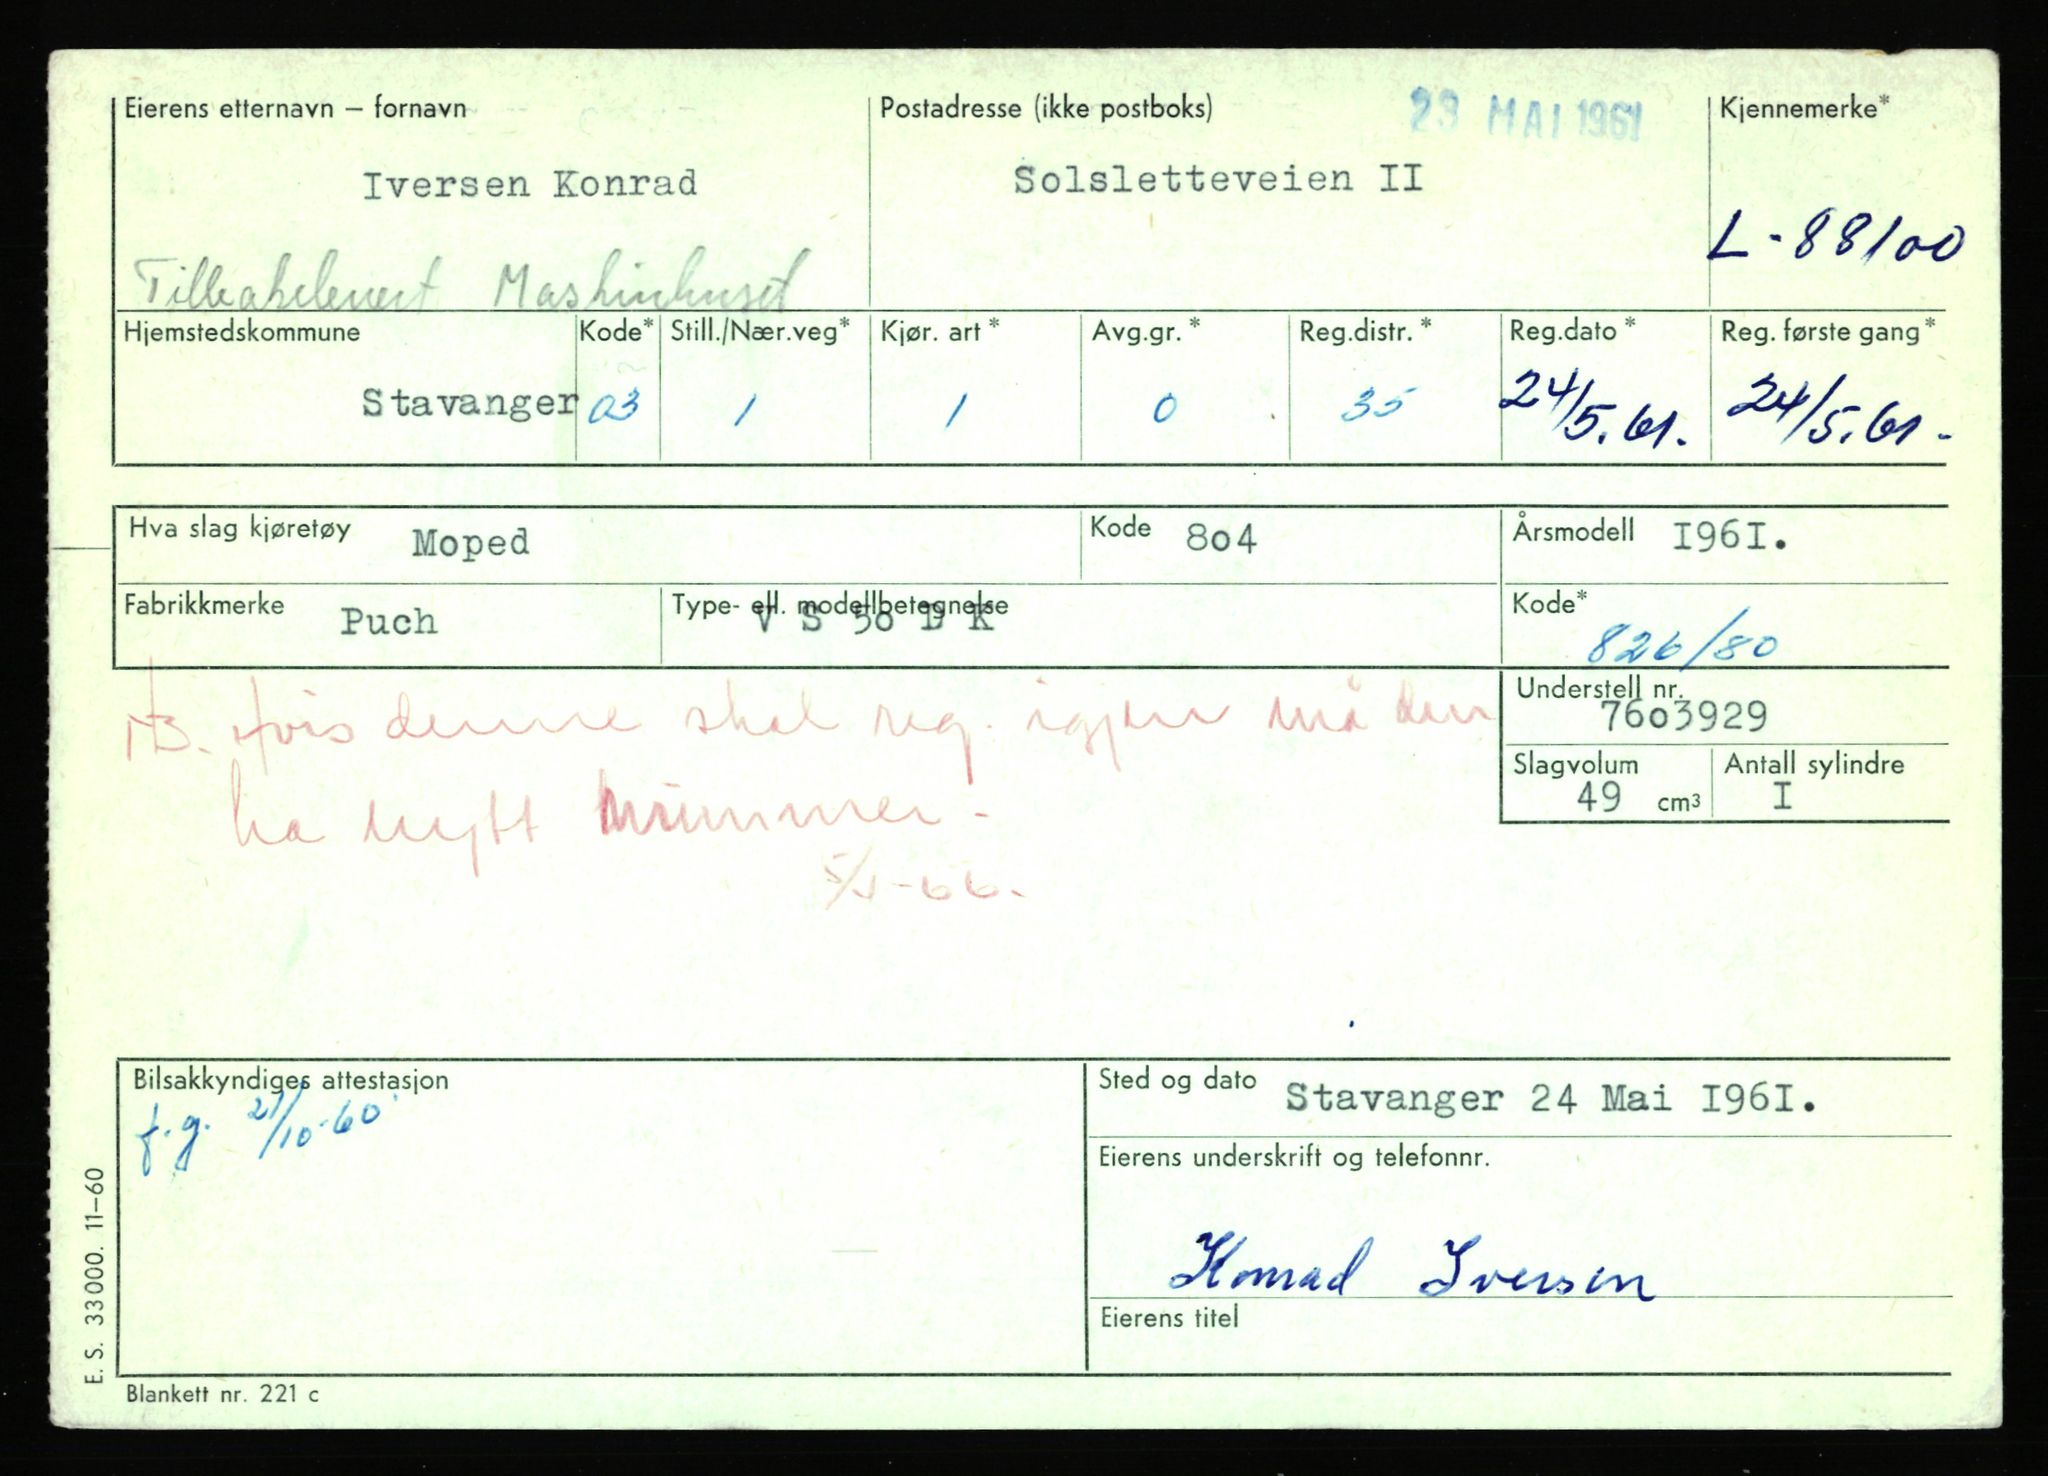 Eierens etternavn – fornavn
Iversen Konrad
Tilbakelevert Maskinhuset
Postadresse (ikke postboks)
23 MAI 1961
Solsletteveien II
Kjennemerke*
L-88100
Hjemstedskommune
Stavanger
Kode*
03
Still./Nær.veg*
1
Kjør. art *
1
Avg.gr. *
0
Reg.distr. *
35
Reg.dato *
24/5.61.
Reg. første gang*
24/5.61.
Hva slag kjøretøy Moped
Kode 8o4
Årsmodell I96I.
Fabrikkmerke Puch
Type- ell. modellbetegnelse
V S 5o D K
Kode*
826/80
NB. Hvis denne skal reg. igjen må den
ha nytt nummer.-
5/1-66.
Understell nr.
76o3929
Slagvolum
49 cm3
Antall sylindre
I
Bilsakkyndiges attestasjon
f.g. 21/10-60
Sted og dato Stavanger 24 Mai I96I.
Eierens underskrift og telefonnr.
Konrad Iversen
Eierens titel
E. S. 33000. 11–60
Blankett nr. 221 c